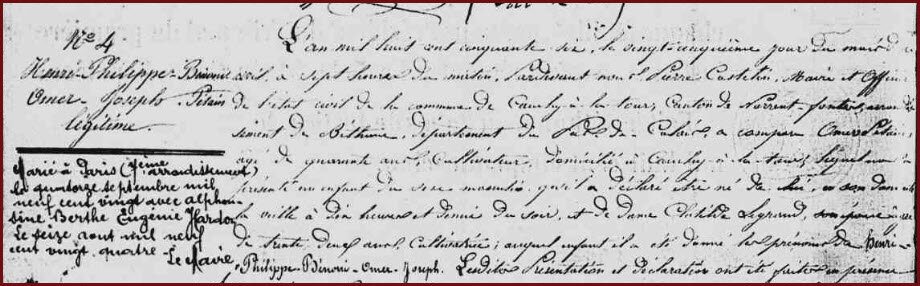 N° 4
Henri Philippe Bénoni
Omer Joseph Pétain
légitime
Marié à Paris (7ème arrondissement)
le quatorze septembre mil
neuf cent vingt avec Alphon
sine Berthe Eugénie Hardon
Le seize aout mil neuf
cent vingt quatre Le Maire
L'an mil huit cent cinquante six, le vingt cinquième jour du mois d'a
vril, à sept heures du matin, Pardevant nous Pierre Castelin, Maire et Officier
de l'état civil de la commune de Cauchy-à-la-tour, Canton de Norrent-fontes, arrondis
sement de Béthune, département du Pas-de-Calais, a comparu Omer Pétain,
agé de quarante ans, Cultivateur, domicilié à Cauchy-à-la-tour, lequel nous a
présenté un enfant du sexe masculin, qu'il a déclaré être né de lui, en son domicile
la veille à dix heures et demie du soir, et de Dame Clotilde Legrand, son épouse agée
de trente deux ans, Cultivatrice; auquel enfant il a été donné les prénoms de Henri-
Philippe-Bénoni-Omer-Joseph. Lesdites Présentation et déclaration ont été faites en présence